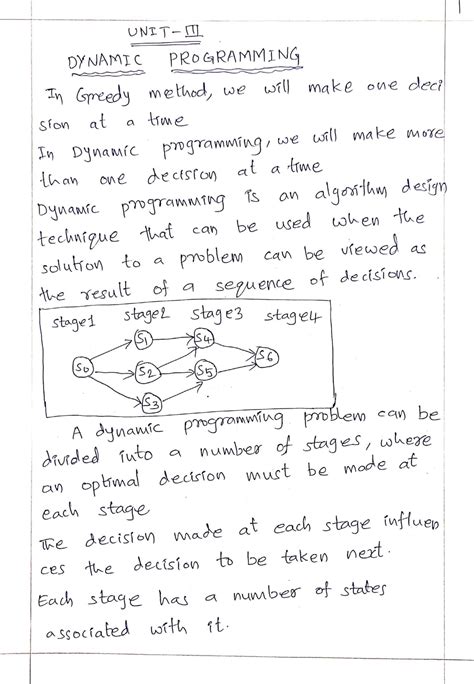 1
UNIT-III
DYNAMIC PROGRAMMING
In Greedy method, we will make one deci
sion at a time
In Dynamic programming, we will make more
than one decision at a time
Dynamic programming is an algorithm design
technique that can be used when the
solution to a problem can be viewed as
the result of a sequence of decisions.
stage1 stage2 stage3 stage4
S1 S4
S0 S2 S5 S6
S3
A dynamic programming problem can be
divided into a number of stages, where
an optimal decision must be made at
each stage
The decision made at each stage influen
ces the decision to be taken next.
Each stage has a number of states
associated with it.